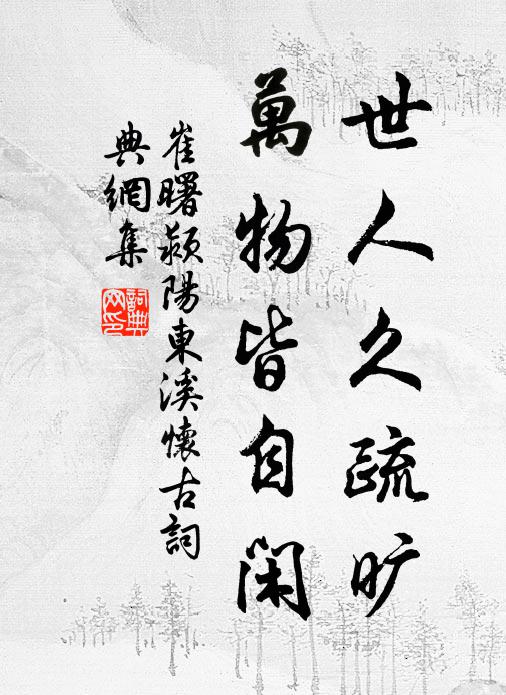 世人久疏旷
萬物皆自閑
崔曙潁陽東溪懷古詞
典網集
詞典
网印